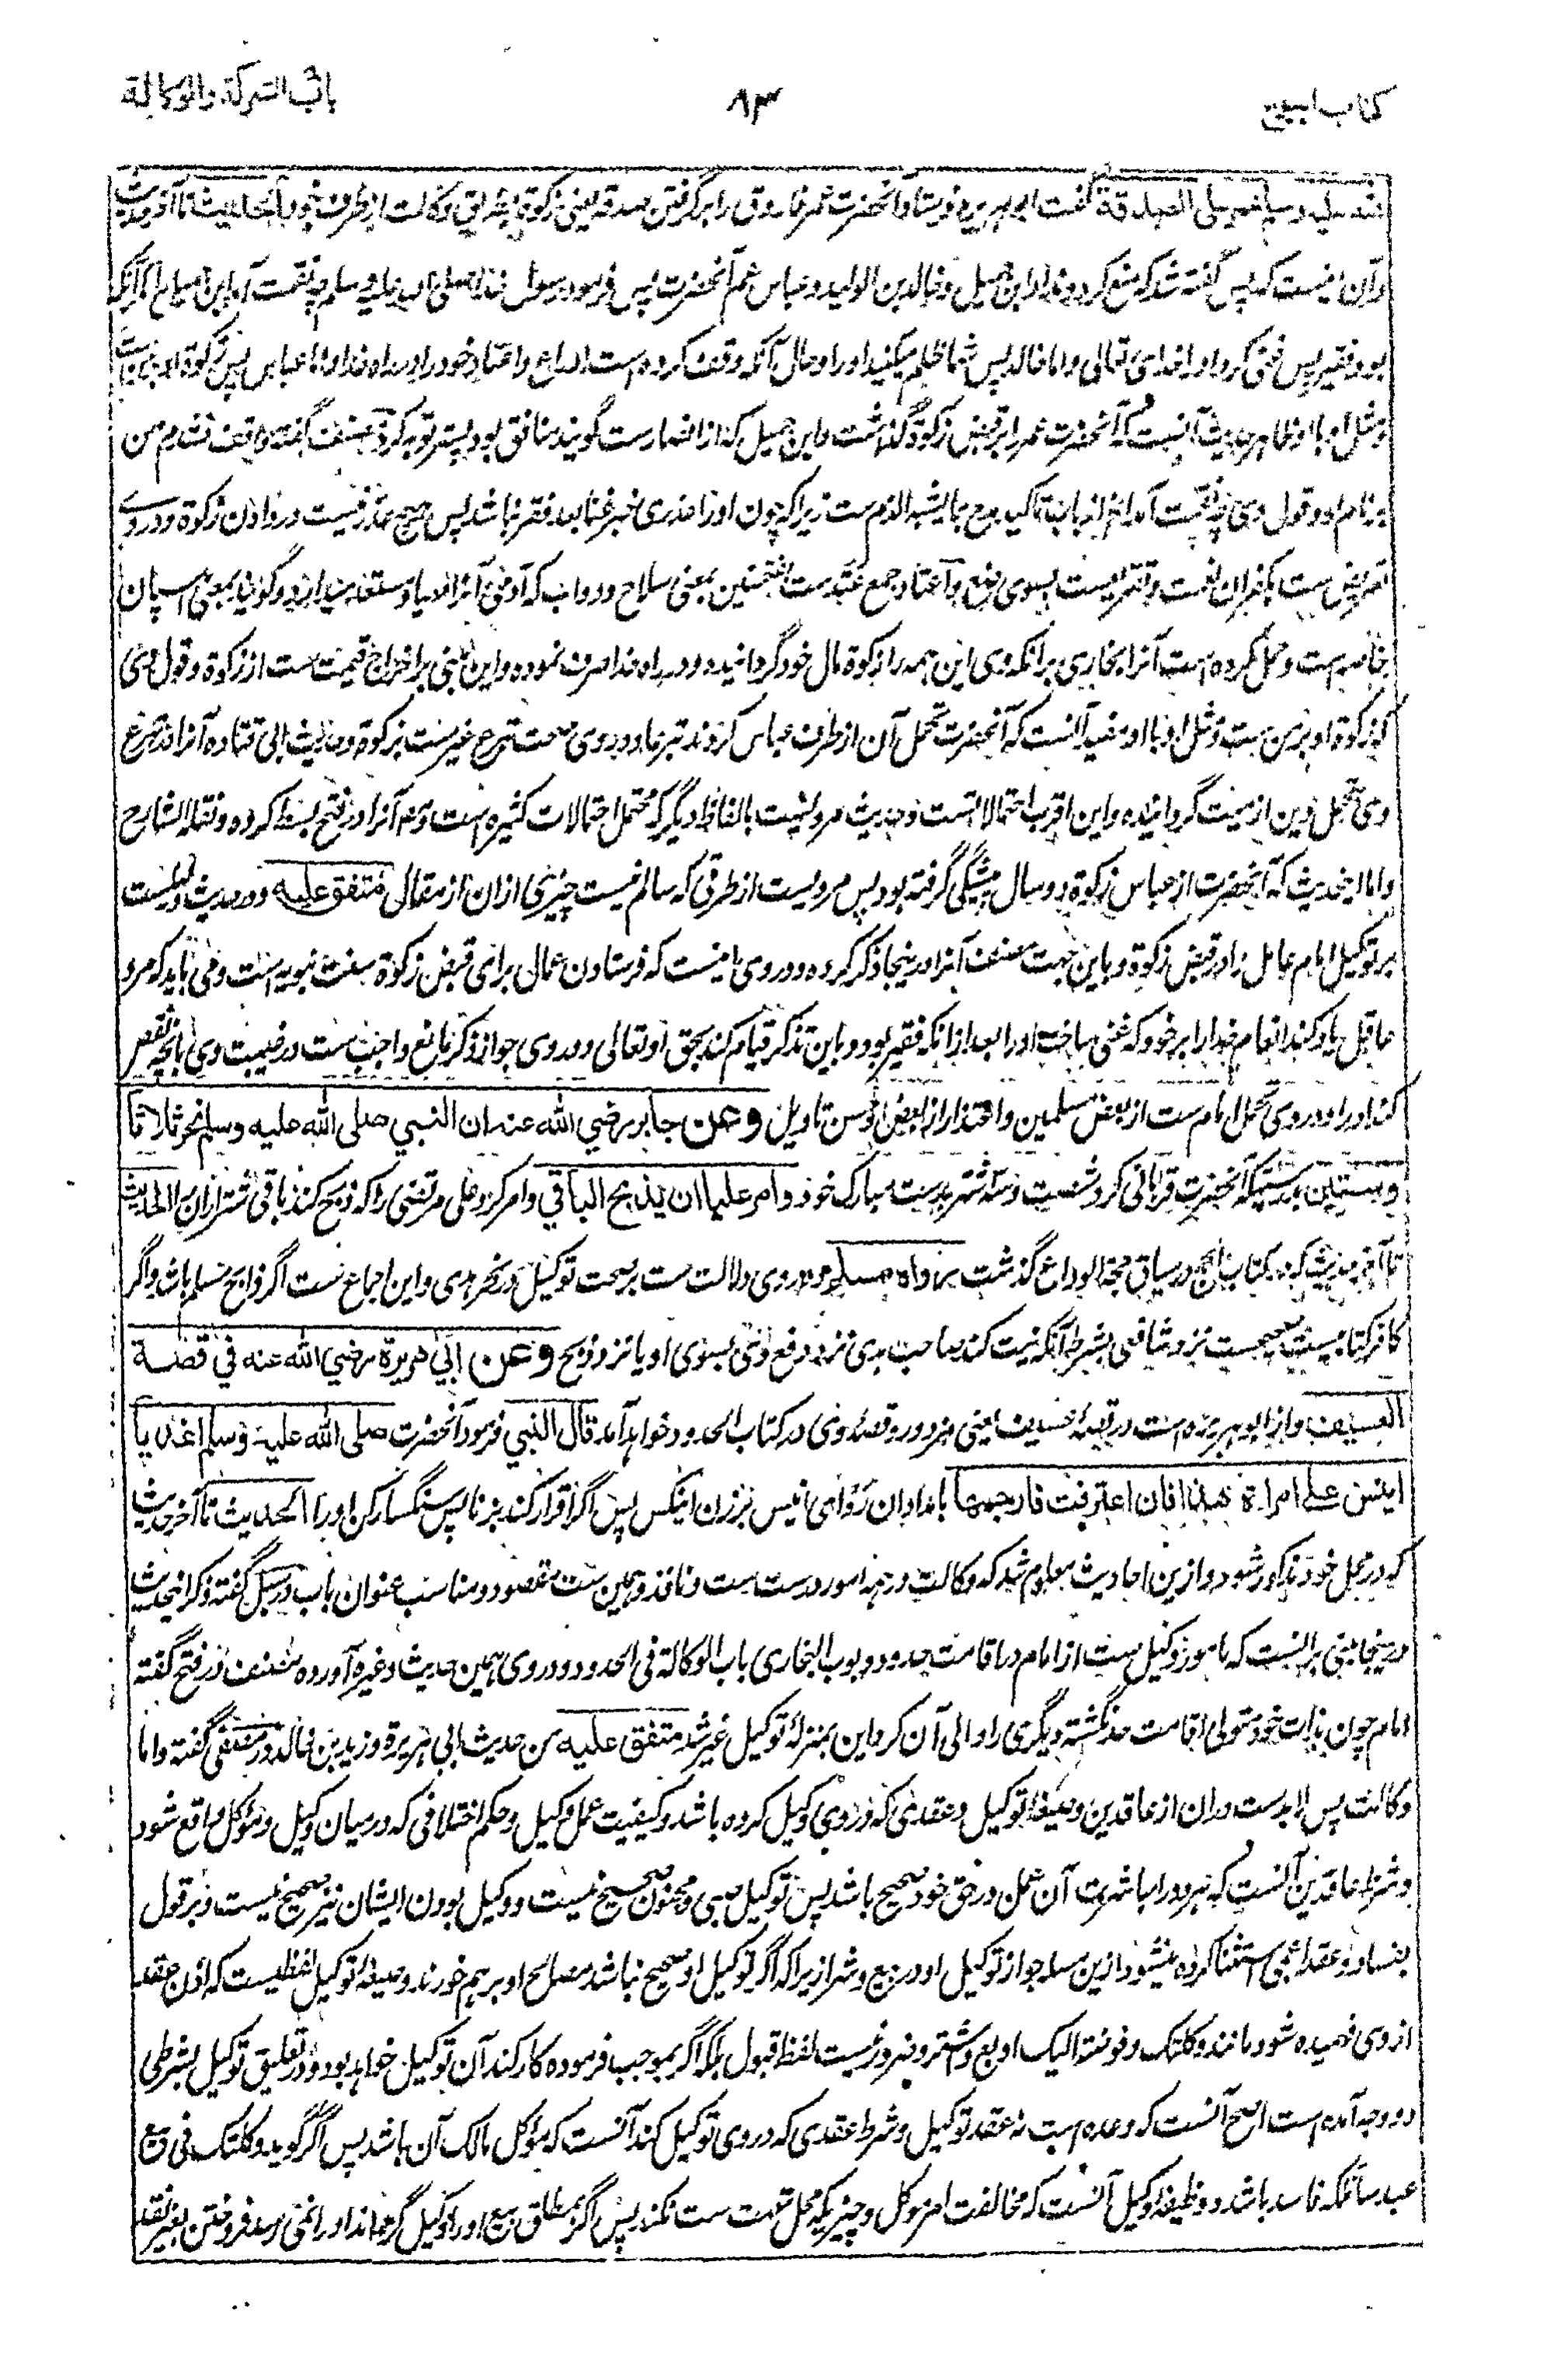 کتاب البیوع
۸۳
باب الشرکة والوکالة
علیه وسلم عمر علی الصدقة گفت ابو هریره فرستاد آنحضرت عمر فاروق را بر گرفتن صدقه یعنی زکوة بطریق وکالت از طرف خود الحدیث تا آخر حدیث
وآن اینست که پس گفته شد که منع کردند ابن جمیل و خالد بن الولید و عباس عم آنحضرت پس فرمود رسول خدا صلی الله علیه وسلم چه نقمت آمد ابن جمیل مگر آنکه
بود فقیر پس غنی کرد او را خدای تعالی واما خالد پس شما ظلم میکنید او را وحال آنکه وقف کرده است ادراع واعتاد خود را در راه خدا واما عباس پس زکوة او بر من ست
ومثل او با او ظاهر حدیث آنست که آنحضرت عمر را بر قبض زکوة گذاشت وابن جمیل که از انصارست گویند منافق بود پستر توبه کرد مصنف گفته واقف نشدم من
بر نام او وقول وی چه نقمت آمد الخ از باب تاکید مدح بما یشبه الذم ست زیرا که چون او را عذری غیر غنا بعد فقر نباشد پس هیچ عذر نیست در دادن زکوة ودروے
تعریض ست بکفران نعمت وتقریع ست بسوی منع واعتاد جمع عتد ست بفتحتین بمعنی سلاح ودواب که آدمی آنرا مستعد میدارد وگویند بمعنی اسپان
خاصه است وحمل کرده است آنرا بخاری برانکه وی این همه را زکوة مال خود گردانیده ودر راه خدا صرف نموده واین مبنی بر اخراج قیمت ست از زکوة وقول وی
که زکوة او بر من ست ومثل او با او مفید آنست که آنحضرت تحمل آن از طرف عباس کردند تبرعا ودروی صحت تبرع غیرست بزکوة وحدیث ابی قتاده آنرا در تبرع
وی تحمل دین از میت گردانیده واین اقرب احتمالاتست وحدیث مرویست بالفاظ دیگر که محتمل احتمالات کثیره است وآنرا در فتح بسط کرده ونقله الشارح
واما این حدیث که آنحضرت از عباس زکوة دو سال پیشگی گرفته بود پس مرویست از طرقی که سالم نیست چیزی ازان از مقال متفق علیه ودر حدیث دلیلست
بر توکیل امام عامل را در قبض زکوة وباین جهت مصنف آنرا درینجا ذکر کرده ودروی اینست که فرستادن عمال برای قبض زکوة سنت نبویه است ومی باید که مرد
عاقل یاد کند انعام خدا را بر خود که غنی ساخت او را بعد ازانکه فقیر بود وباین تذکر قیام کند بحق او تعالی ودروی جواز ذکر مانع واجب ست در غیبت وی بانچه نقص
کند او را ودروی تحمل امام ست از بعض مسلمین واعتذار از بعض وحسن تاویل وعن جابر رضي الله عنه ان النبي صلى الله عليه وسلم نحر ثلاثا
وستین بدرستیکه آنحضرت قربانی کرد شصت وسه شتر بدست مبارک خود وامر علیا ان یذبح الباقي وامر کرد علی مرتضی را که ذبح کند باقی شتران را الحدیث
تا آخر حدیث که در کتاب الحج در سیاق حجة الوداع گذشت رواه مسلم ودروی دلالت ست بر صحت توکیل در نحر هدی واین اجماع ست اگر ذابح مسلم باشد واگر
کافر کتابیست صحیحست نزد شافعی بشرط آنکه نیت کند صاحب هدی نزد دفع وی بسوی او یا نزد ذبح وعن ابي هریرة رضي الله عنه في قصة
العسیف واز ابو هریره است در قصه عسیف یعنی مزدور وقصه وی در کتاب الحدود خواهد آمد قال النبي فرمود آنحضرت صلى الله عليه وسلم اغد یا
انیس على امرأة هذا فان اعترفت فارجمها بامدادان رو ای انیس بر زن اینکس پس اگر اقرار کند بزنا پس سنگسار کن او را الحدیث تا آخر حدیث
که در محل خود مذکور شود وازین احادیث معلوم شد که وکالت در همه امور درست ست ونافذ وهمین ست مقصود ومناسب عنوان باب در سبل گفته ذکر اینحدیث
درینجا مبنی برانست که مامور وکیل ست از امام در اقامت حدود وبوب البخاری باب الوکالة فی الحدود ودروی همین حدیث وغیره آورده مصنف در فتح گفته
امام چون بذات خود متولی اقامت حد نگشته دیگری را والی آن کرد این بمنزله توکیل غیر شد متفق علیه من حدیث ابی هریرة وزید بن خالد در مصفی گفته واما
وکالت پس لابدست دران از عاقدین وصیغه توکیل وعقدی که دروی وکیل کرده باشد وکیفیت عمل وکیل وحکم اختلافی که درمیان وکیل وموکل واقع شود
وشرط عاقدین آنست که هر دو را مباشرت آن عمل در حق خود صحیح باشد پس توکیل صبی ومجنون صحیح نیست ووکیل بودن ایشان نیز صحیح نیست وبر قول
بفساد وعقد اعمی استثنا کرده میشود ازین مسله جواز توکیل او در بیع وشرا زیرا که اگر توکیل او صحیح نباشد مصالح او برهم خورند وصیغه توکیل لفظیست که اذن عقد
ازوی فهمیده شود مانند وکلتک وفوضت الیک او بع واشتر وضرور نیست لفظ قبول بلکه اگر بموجب فرموده کار کند آن توکیل خواهد بود ودر تعلیق توکیل بشرطی
دو وجه آمده است اصح آنست که وعده است نه عقد توکیل وشرط عقدی که دروی توکیل کند آنست که موکل مالک آن باشد پس اگر گوید وکلتک فی بیع
عبد سأملکه فاسد باشد ووظیفه وکیل آنست که مخالفت امر موکل وچیزیکه محل تهمت ست نکند پس اگر بمطلق بیع او را وکیل گرداند او را نمی رسد فروختن بغیر نقد